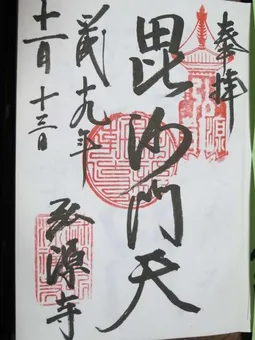 奉拝
毘沙門天
平成十九年
十一月十三日
弘源寺